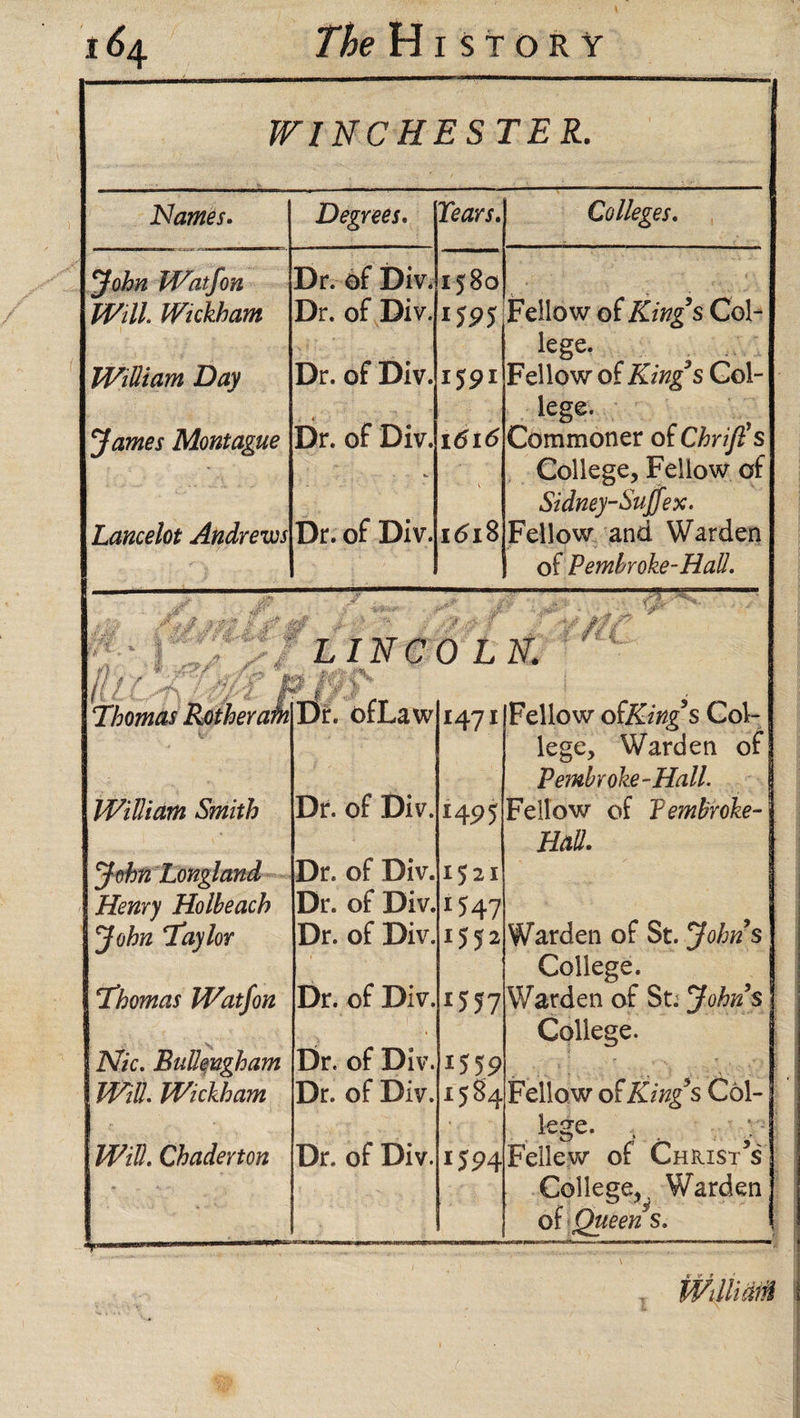 164 The HISTORY
WINCHESTER.
Names. Degrees. Years. Colleges.
John Watson Dr. of Div. 1580
Will. Wickham Dr. of Div. 1595 Fellow of King's Col-
lege.
William Day Dr. of Div. 1591 Fellow of King's Col-
lege.
James Montague Dr. of Div. 1616 Commoner of Christ's
College, Fellow of
Sidney-Sussex.
Lancelot Andrews Dr. of Div. 1618 Fellow and Warden
of Pembroke-Hall.
LINCOLN.
Thomas Rotheram Dr. of Law 1471 Fellow of King's Col-
lege, Warden of
Pembroke-Hall.
William Smith Dr. of Div. 1495 Fellow of Pembroke-
Hall.
John Longland Dr. of Div. 1521
Henry Holbeach Dr. of Div. 1547
John Taylor Dr. of Div. 1552 Warden of St. John's
College.
Thomas Watson Dr. of Div. 1557 Warden of St. John's
College.
Nic. Bullengham Dr. of Div. 1559
Will. Wickham Dr. of Div. 1584 Fellow of King's Col-
lege.
Will. Chaderton Dr. of Div. 1594 Fellew of CHRIST's
College, Warden
of Queen's.
William